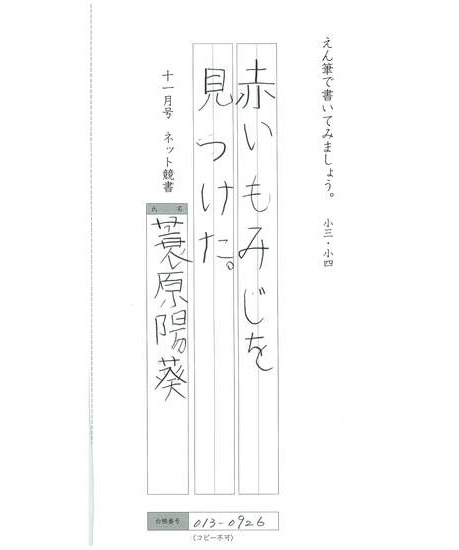 えん筆で書いてみましょう。 小三・小四
赤いもみじを
見つけた。
十一月号 ネット競書
氏名
蓑原陽葵
台帳番号 013-0926
(コピー不可)